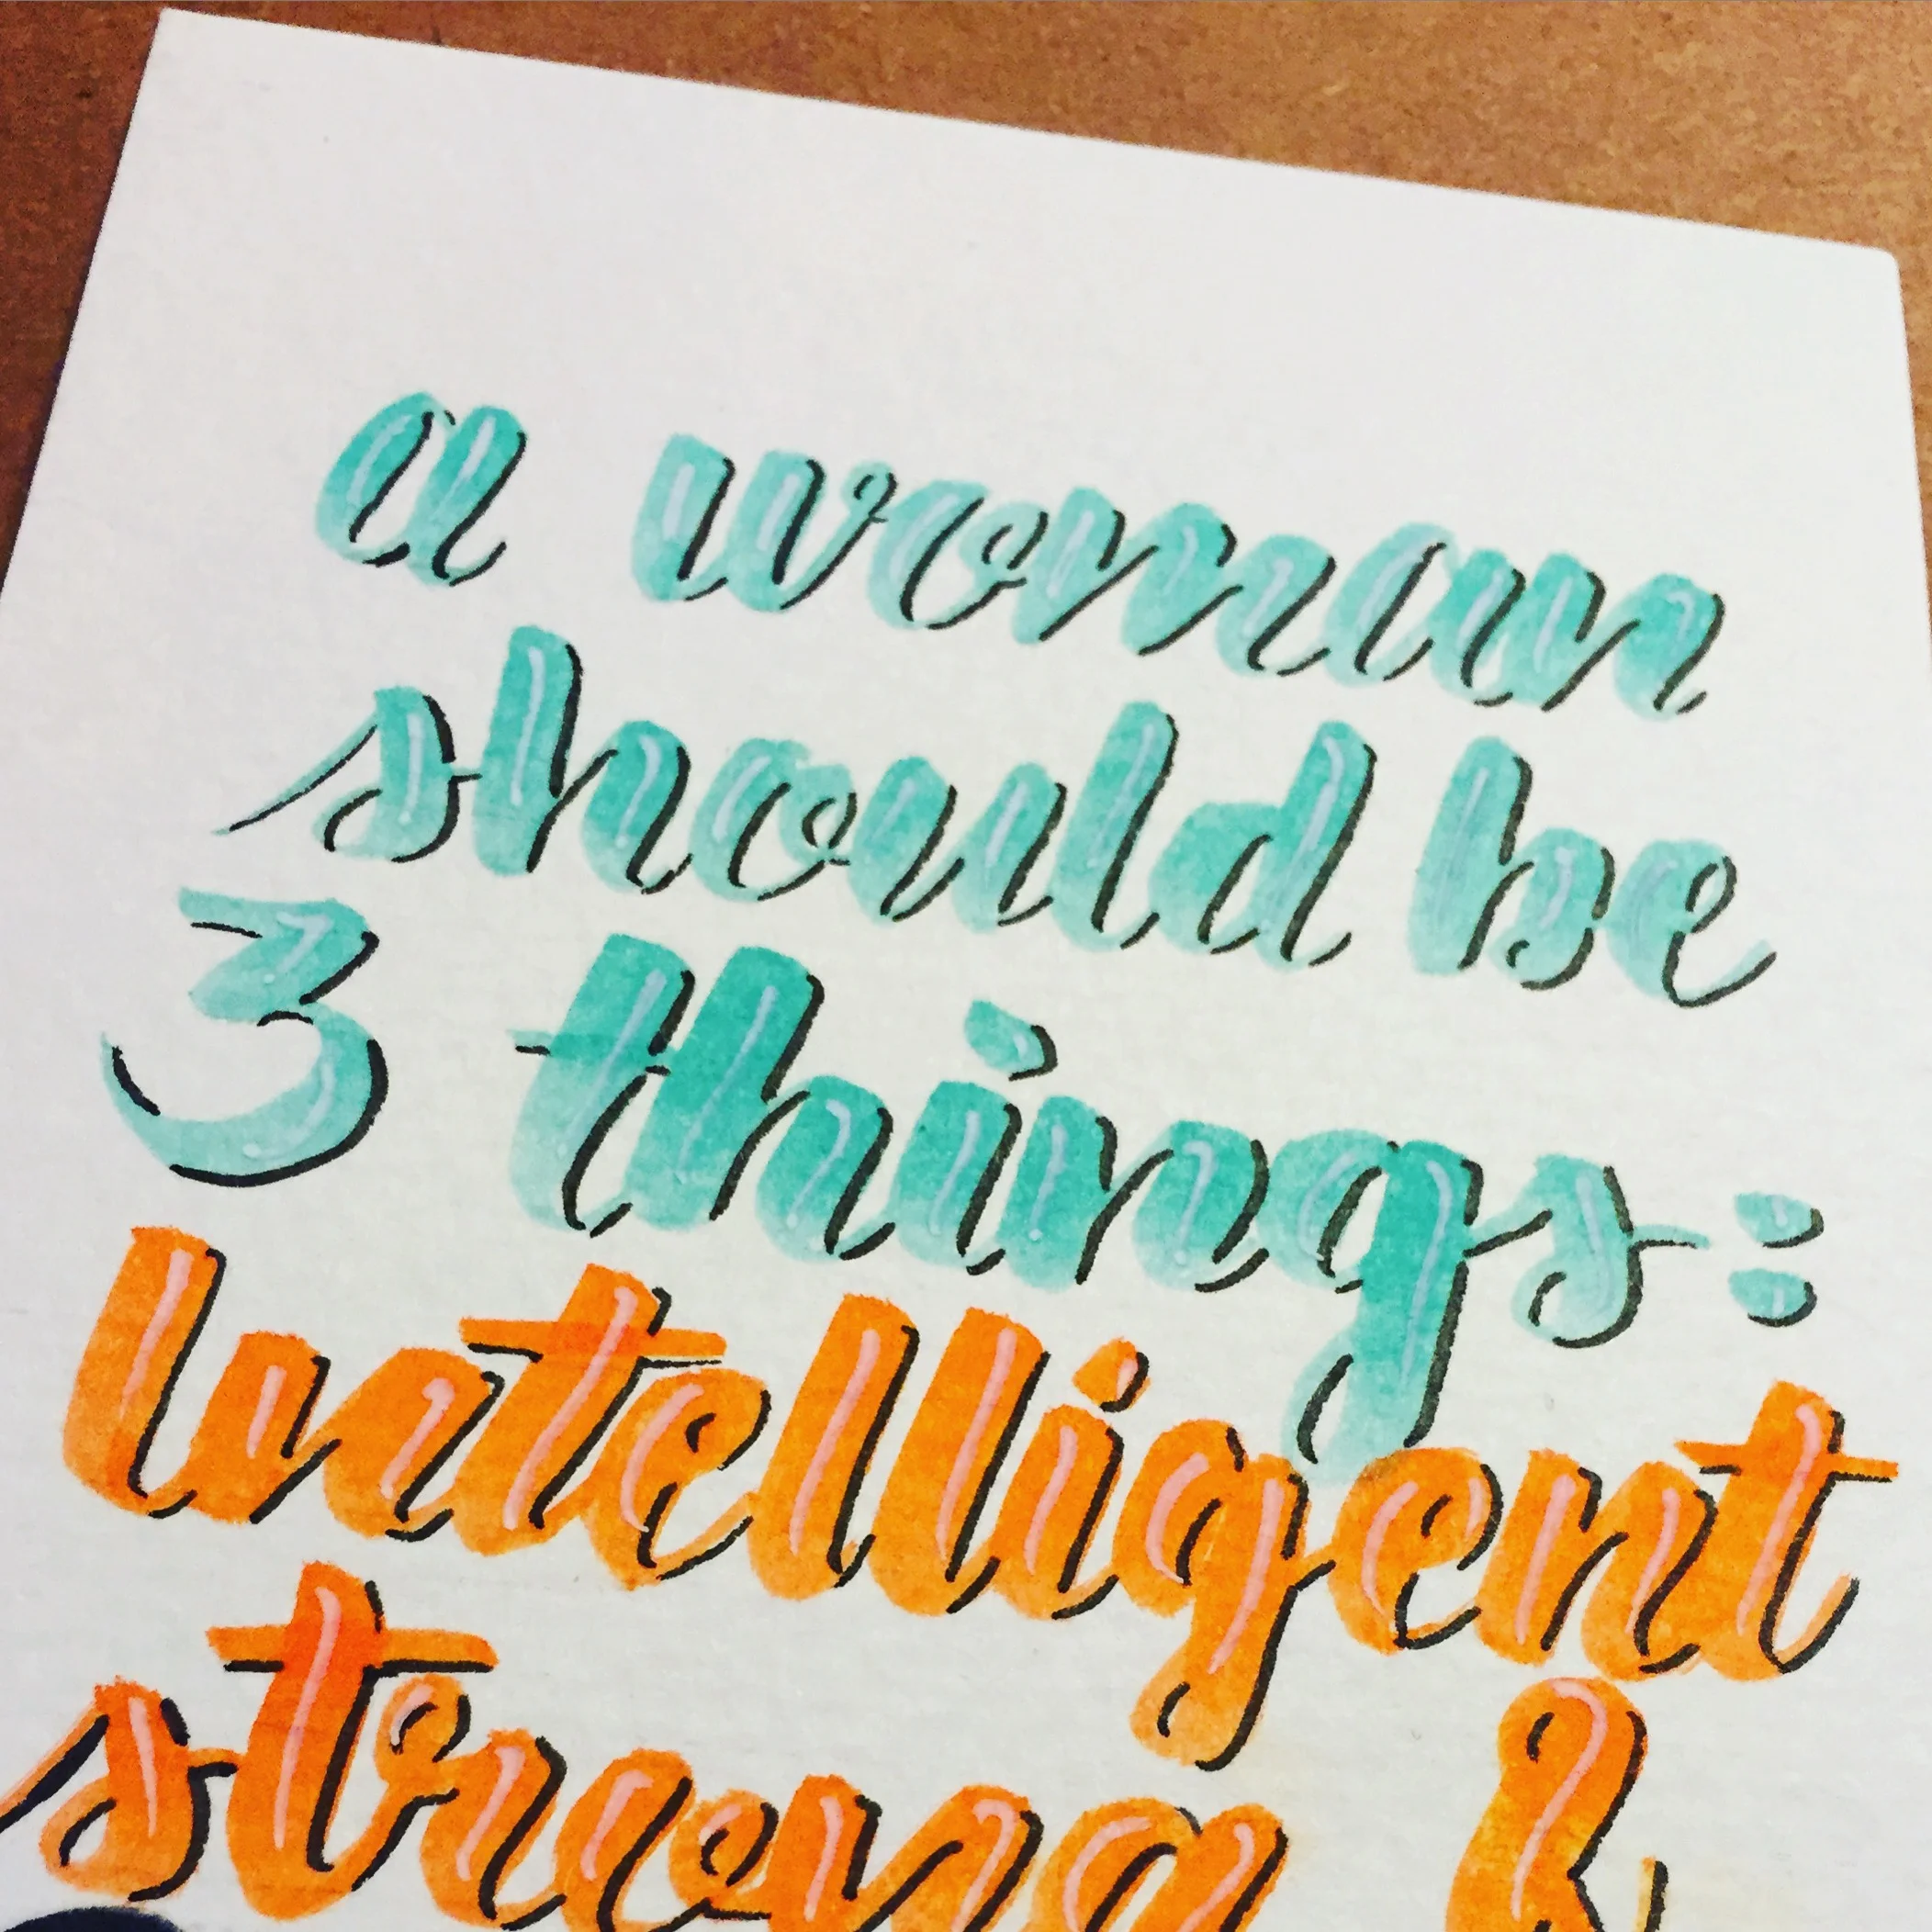 a woman
should be
3 things:
Intelligent
strong &